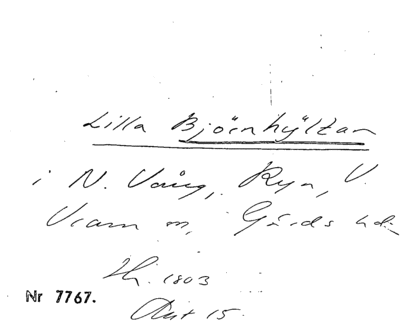 Lilla Björnhyltan
i N. Vång, Ryn, V.
Vram sn, Gärds hd.
Hk. 1803
Nr 7767.
Akt 15.